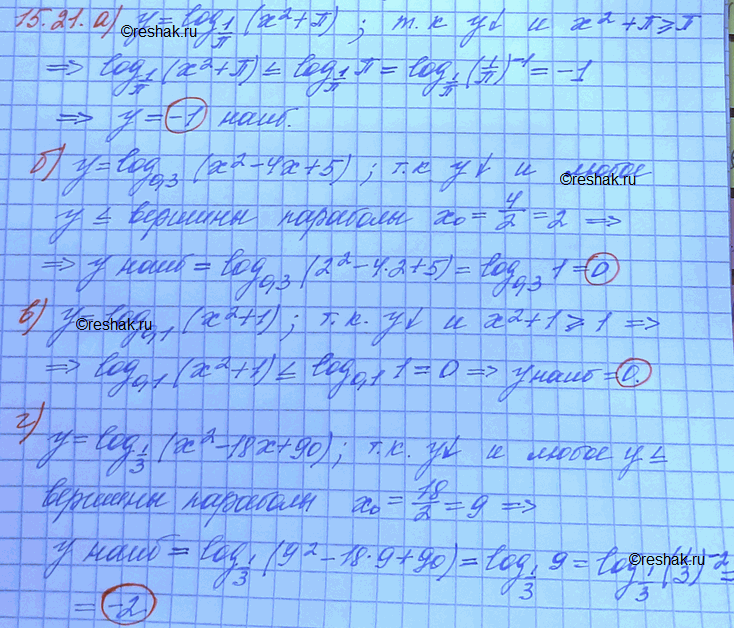 15.21. а) y = log_{1/π} (x² + π) ; т.к y↓ и x² + π ⩾ π
©reshak.ru
⇒ log_{1/π} (x² + π) ≤ log_{1/π} π = log_{1/π} (1/π)⁻¹ = -1
⇒ y = -1 наиб.
б) y = log_{0,3} (x² - 4x + 5) ; т.к y↓ и любое
©reshak.ru
y ≤ вершины параболы x₀ = 4/2 = 2 ⇒
⇒ y наиб = log_{0,3} (2² - 4·2 + 5) = log_{0,3} 1 = 0
в) y = log_{0,1} (x² + 1) ; т.к. y↓ и x² + 1 ⩾ 1 ⇒
©reshak.ru
⇒ log_{0,1} (x² + 1) ≤ log_{0,1} 1 = 0 ⇒ y наиб = 0.
г) y = log_{1/3} (x² - 18x + 90) ; т.к. y↓ и любое y ≤
вершины параболы x₀ = 18/2 = 9 ⇒
y наиб = log_{1/3} (9² - 18·9 + 90) = log_{1/3} 9 = log_{1/3} (1/3)⁻² =
©reshak.ru
= -2